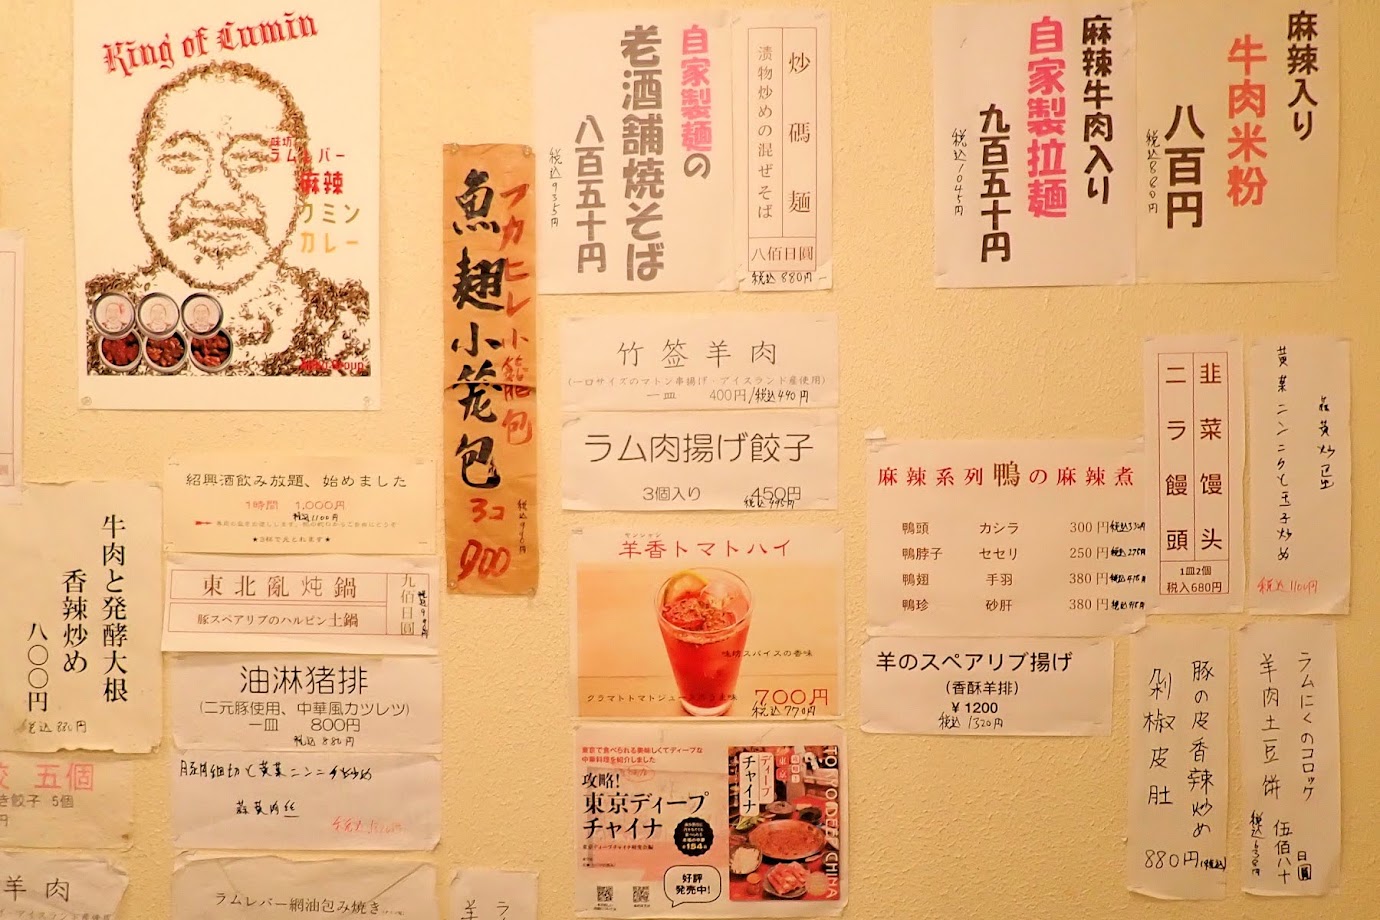 King of Cumin
味坊
ラムレバー
麻辣
カミン
カレー
フカヒレ小籠包
魚翅小笼包
3コ
900
自家製麺の
老酒舗焼そば
八百五十円
税込935円
炒碼麺
漬物炒めの混ぜそば
八佰日圓
税込880円
麻辣牛肉入り
自家製拉麺
九百五十円
税込1045円
麻辣入り
牛肉米粉
八百円
税込880円
竹签羊肉
(一口サイズのマトン串揚げ・アイスランド産使用)
一皿 400円/税込440円
ラム肉揚げ餃子
3個入り 450円
税込495円
羊香トマトハイ
ヤンシャン
味坊スパイスの香味
700円
税込770円
東京で食べられる美味しくてディープな
中華料理を紹介しました
攻略!
東京ディープ
チャイナ
全154品
好評
発売中!
東京
ディープ
チャイナ
TOKYO DEEP CHINA
麻辣系列鴨の麻辣煮
鴨頭 カシラ 300円 税込330円
鴨脖子 セセリ 250円 税込275円
鴨翅 手羽 380円 税込418円
鴨珍 砂肝 380円 税込418円
羊のスペアリブ揚げ
(香酥羊排)
¥1200
税込1320円
韭菜馒头
ニラ饅頭
1皿2個
税入680円
黄菜ニンニクと玉子炒め
税込1100円
豚の皮香辣炒め
剁椒皮肚
880円(税込)
ラムにくのコロッケ
羊肉土豆饼
伍佰八十日圓
税込638円
紹興酒飲み放題、始めました
1時間 1,000円
税込1100円
★3杯で元とれます★
東北亂炖鍋
豚スペアリブのハルビン土鍋
九佰日圓
税込990円
油淋猪排
(二元豚使用、中華風カツレツ)
一皿 800円
税込880円
牛肉と発酵大根
香辣炒め
八〇〇円
税込880円
餃 五個
き餃子 5個
円
羊肉
ラムレバー網油包み焼き
ラ
羊